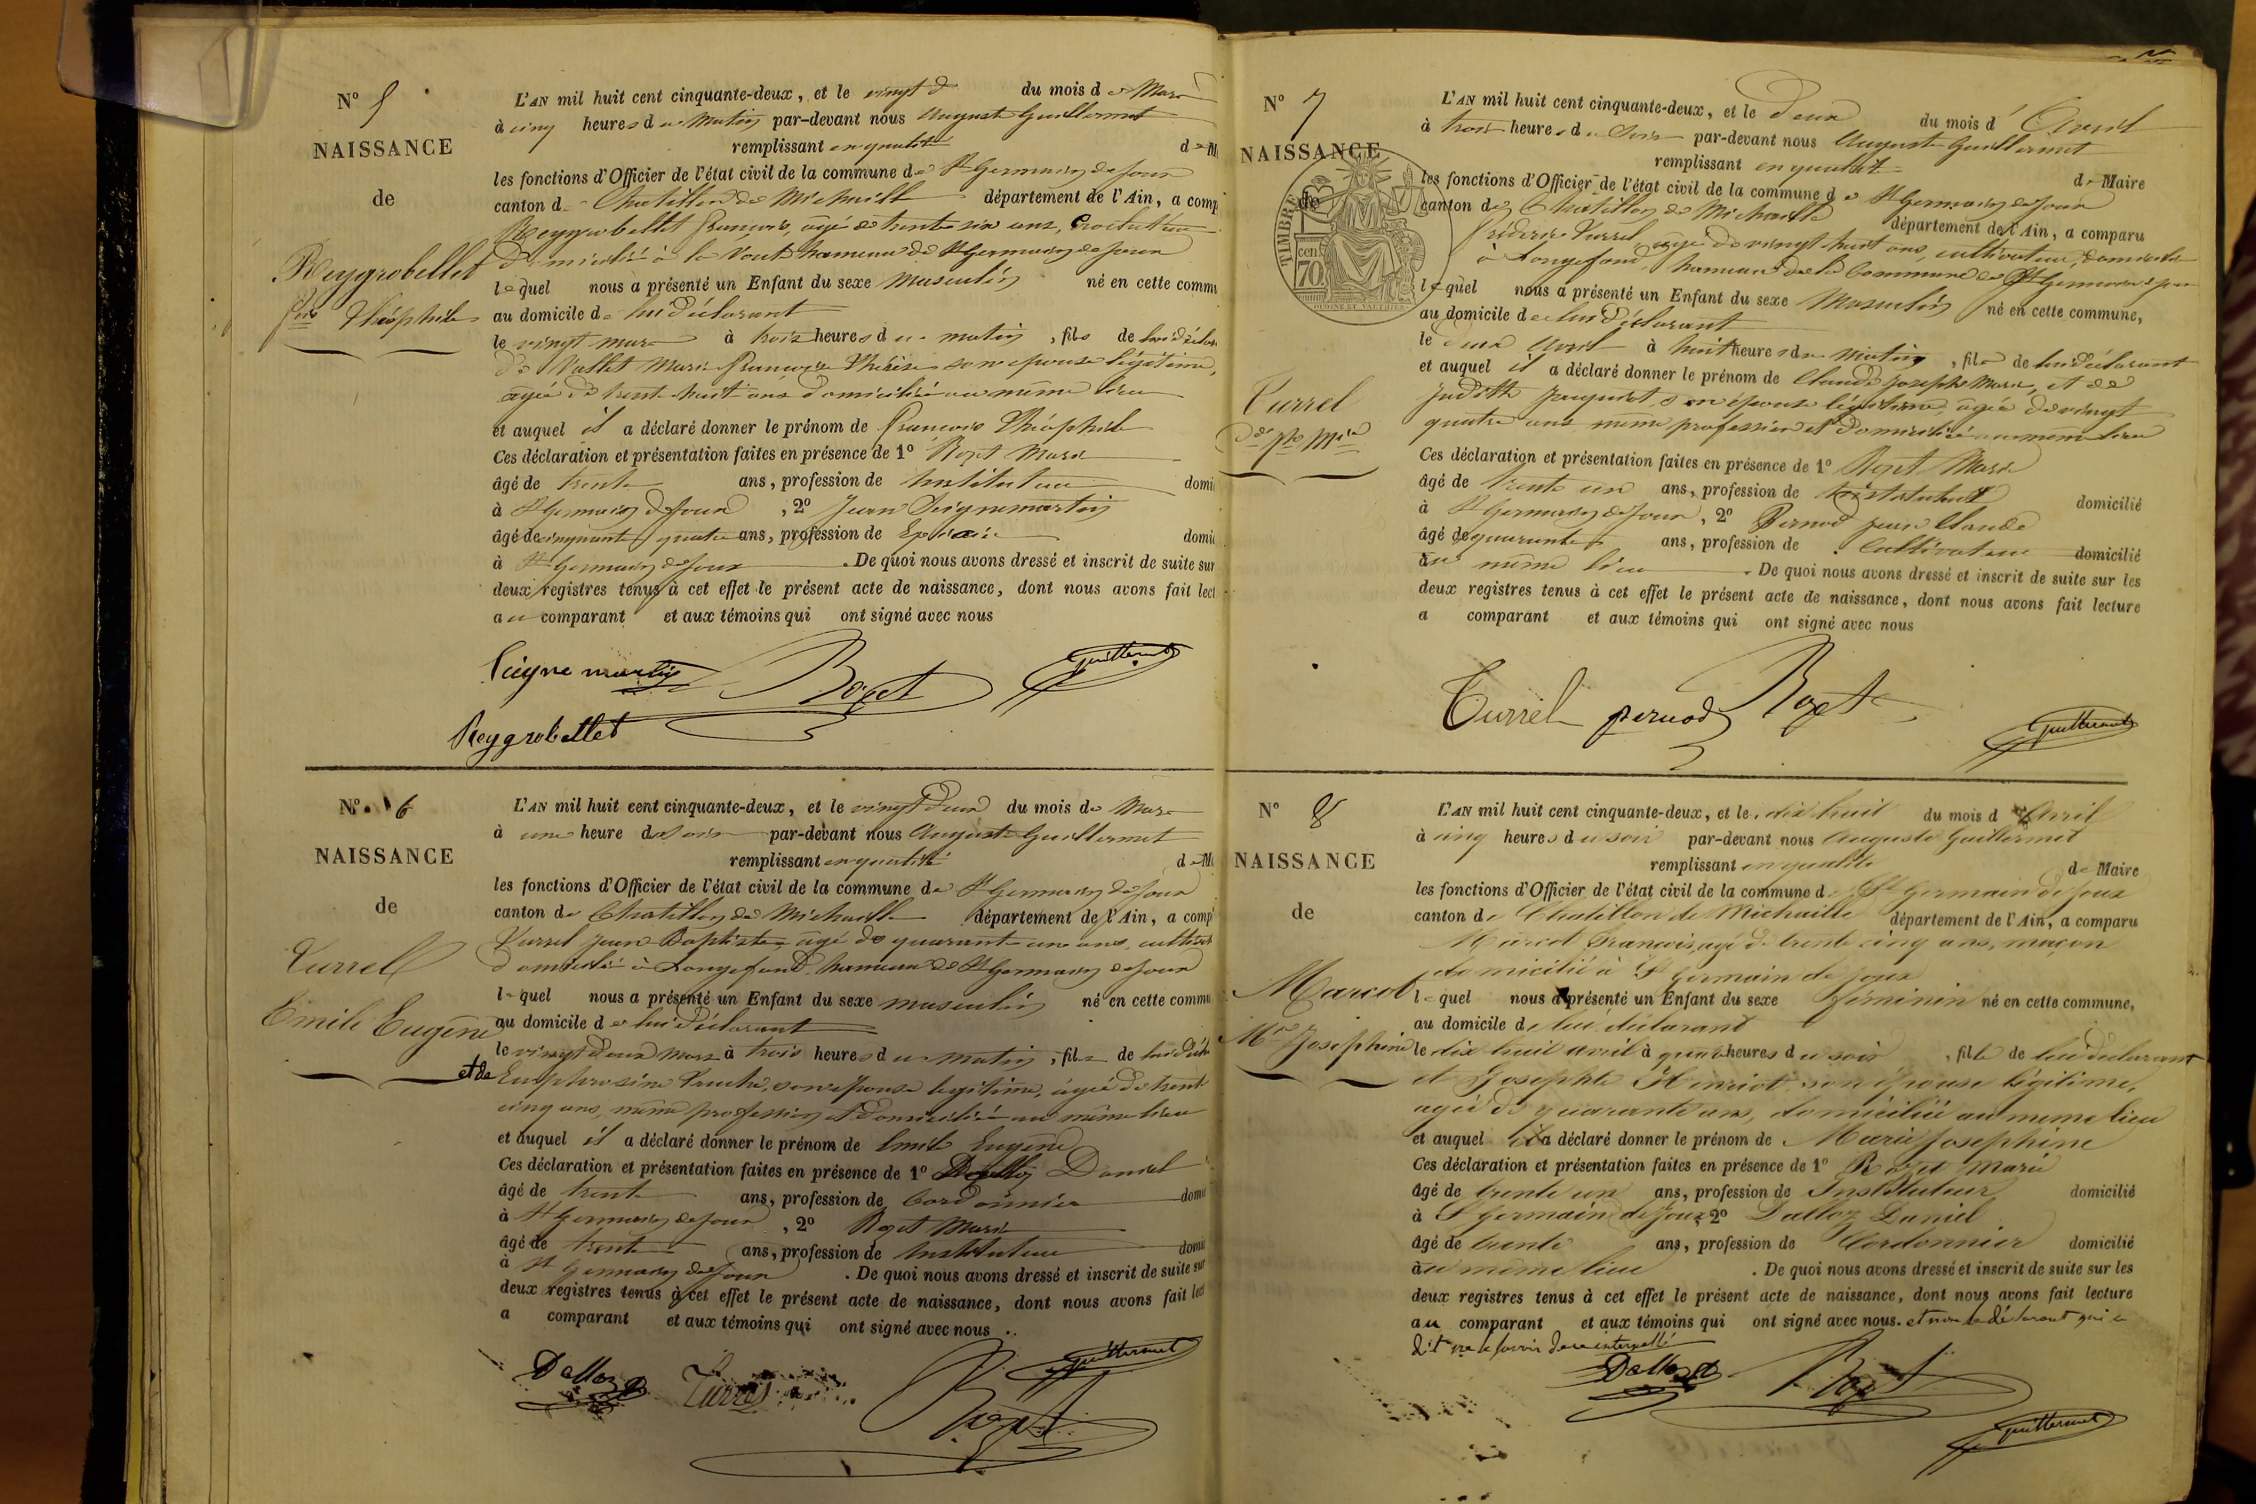 N° 5
NAISSANCE
de
Reygrobellet
fois Théophile
L'AN mil huit cent cinquante-deux, et le vingt du mois de Mars
à cinq heures du Matin par-devant nous Auguste Guillermet
remplissant en qualité de M
les fonctions d'Officier de l'état civil de la commune de St Germain de Joux
canton de Chatillon de Michaille département de l'Ain, a comp
Reygrobellet François, agé de trente six ans, Cultivateur
domicilié à la Voute hameau de St Germain de Joux
lequel nous a présenté un Enfant du sexe Masculin né en cette commu
au domicile de lui déclarant
le vingt mars à trois heures du matin, fils de lui déclar
de Vallet Marie Françoise Thérèse son epouse légitime,
agée de trente huit ans domiciliée au même lieu
et auquel il a déclaré donner le prénom de François Théophile
Ces déclaration et présentation faites en présence de 1° Rozet Marie
âgé de trente ans, profession de Instituteur domi
à St Germain de Joux, 2° Jean Seignemartin
âgé de cinquante quatre ans, profession de Epicier domi
à St Germain de Joux. De quoi nous avons dressé et inscrit de suite sur
deux registres tenus à cet effet le présent acte de naissance, dont nous avons fait lect
au comparant et aux témoins qui ont signé avec nous
Seigne martin Rozet Guillermet
Reygrobellet
N° 6
NAISSANCE
de
Turrel
Emile Eugène
L'AN mil huit cent cinquante-deux, et le vingt deux du mois de Mars
à une heure du soir par-devant nous Auguste Guillermet
remplissant en qualité de M
les fonctions d'Officier de l'état civil de la commune de St Germain de Joux
canton de Chatillon de Michaille département de l'Ain, a comp
Turrel Jean Baptiste, agé de quarante un ans, cultivat
domicilié à Longefand hameau de St Germain de Joux
lequel nous a présenté un Enfant du sexe masculin né en cette commu
au domicile de lui déclarant
le vingt deux mars à trois heures du matin, fils de lui décla
et de Euphrosine son epouse legitime, agée de trente
cinq ans, même profession et domiciliée au même lieu
et auquel il a déclaré donner le prénom de Emile Eugène
Ces déclaration et présentation faites en présence de 1° Dalloz Daniel
âgé de trente ans, profession de Cordonnier domi
à St Germain de Joux, 2° Rozet Marie
âgé de trente ans, profession de Instituteur domi
à St Germain de Joux. De quoi nous avons dressé et inscrit de suite sur
deux registres tenus à cet effet le présent acte de naissance, dont nous avons fait lect
a comparant et aux témoins qui ont signé avec nous
Dalloz Turrel Rozet Guillermet
N° 7
NAISSANCE
de
TIMBRE
cen
70
Turrel
Cde Jph Mie
L'AN mil huit cent cinquante-deux, et le deux du mois d'Avril
à trois heures du Soir par-devant nous Auguste Guillermet
remplissant en qualité de Maire
les fonctions d'Officier de l'état civil de la commune de St Germain de Joux
canton de Chatillon de Michaille département de l'Ain, a comparu
Fréderic Turrel agé de vingt huit ans, cultivateur, domicilié
à Longefand, hameau de la Commune de St Germain de Joux
lequel nous a présenté un Enfant du sexe Masculin né en cette commune,
au domicile de lui déclarant
le deux Avril à huit heures du Matin, fils de lui déclarant
et auquel il a déclaré donner le prénom de Claude Joseph Marie, et de
Judith Jacquet, son épouse légitime, agée de vingt
quatre ans même profession et domiciliée au même lieu
Ces déclaration et présentation faites en présence de 1° Rozet Marie
âgé de trente un ans, profession de Instituteur domicilié
à St Germain de Joux, 2° Pernod Jean Claude
âgé de quarante ans, profession de Cultivateur domicilié
au même lieu. De quoi nous avons dressé et inscrit de suite sur les
deux registres tenus à cet effet le présent acte de naissance, dont nous avons fait lecture
a comparant et aux témoins qui ont signé avec nous
Turrel pernod Rozet Guillermet
N° 8
NAISSANCE
de
Marcot
Mie Josephine
L'AN mil huit cent cinquante-deux, et le dix huit du mois d'Avril
à cinq heures du soir par-devant nous Auguste Guillermet
remplissant en qualité de Maire
les fonctions d'Officier de l'état civil de la commune de St Germain de Joux
canton de Chatillon de Michaille département de l'Ain, a comparu
Marcot François, agé de trente cinq ans, maçon
domicilié à St Germain de Joux
lequel nous a présenté un Enfant du sexe féminin né en cette commune,
au domicile de lui déclarant
le dix huit avril à quatre heures du soir, fille de lui déclarant
et Josephte Henriot son épouse légitime,
agée de quarante ans, domiciliée au même lieu
et auquel il a déclaré donner le prénom de Marie Josephine
Ces déclaration et présentation faites en présence de 1° Rozet Marie
âgé de trente un ans, profession de Instituteur domicilié
à St Germain de Joux, 2° Dalloz Daniel
âgé de trente ans, profession de Cordonnier domicilié
au même lieu. De quoi nous avons dressé et inscrit de suite sur les
deux registres tenus à cet effet le présent acte de naissance, dont nous avons fait lecture
au comparant et aux témoins qui ont signé avec nous. et non le déclarant qui a
dit ne le savoir de ce interpellé
Dalloz Rozet
Guillermet